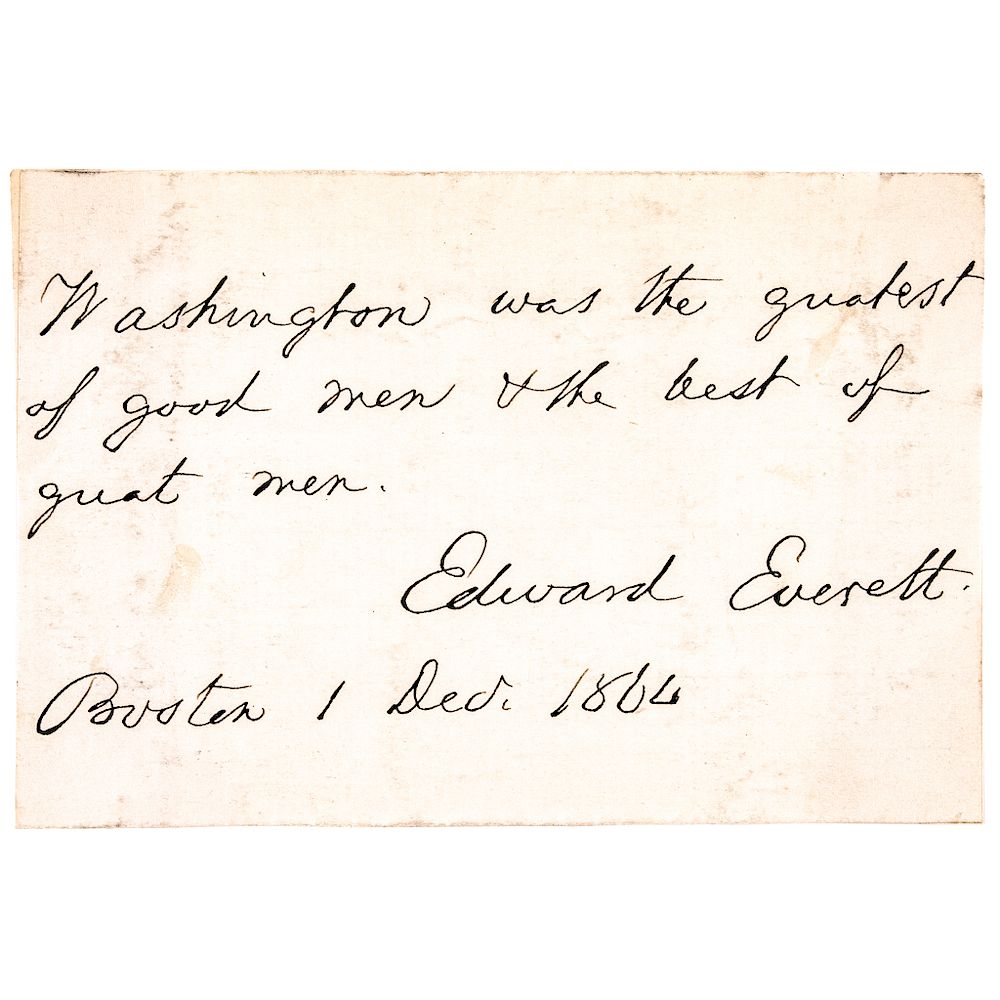 Washington was the greatest
of good men & the best of
great men.
Edward Everett.
Boston 1 Dec. 1864